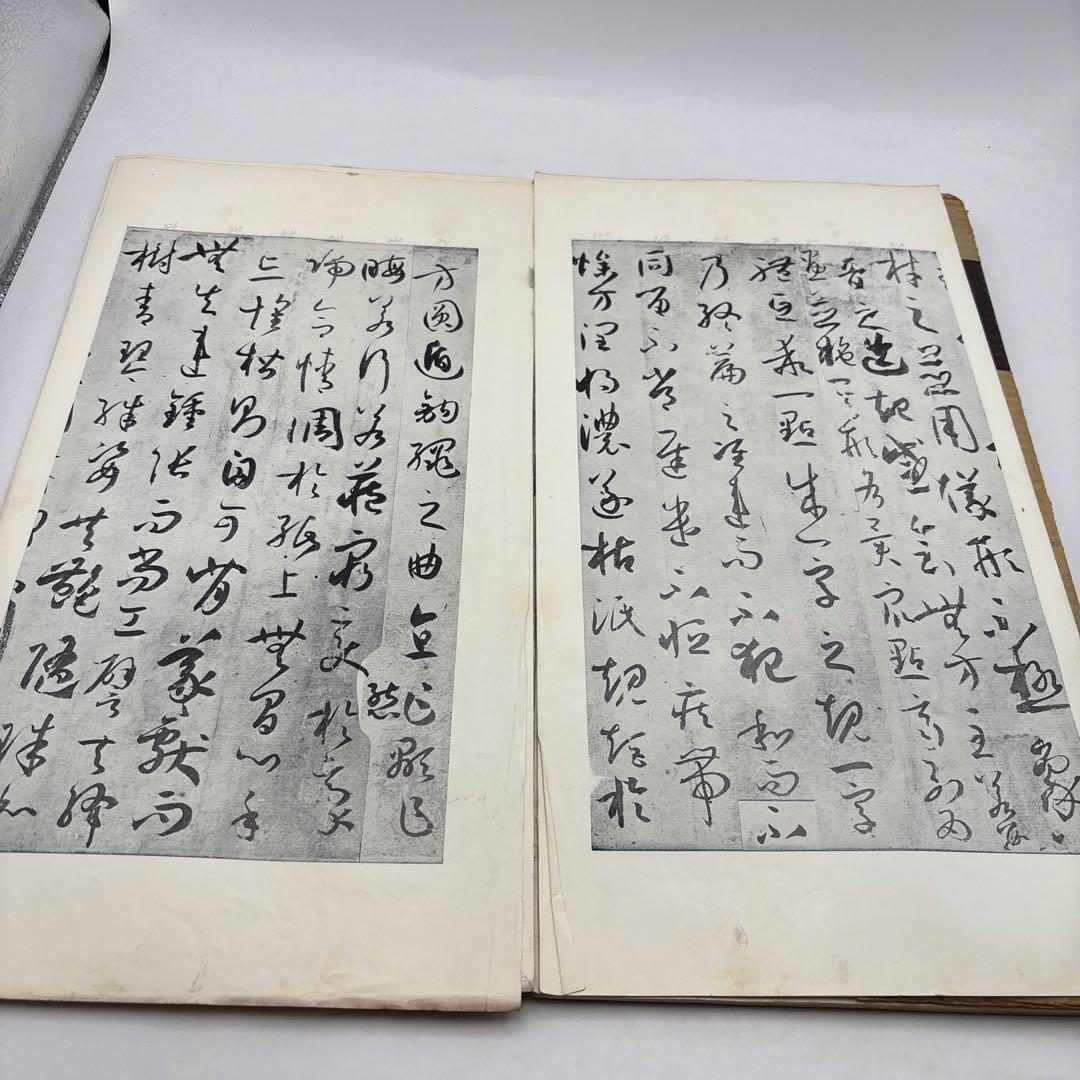 材之並用儀形不極象八
音之迭起感會無方至若數
畫並施其形各異衆點齊列為
體互乖一點成一字之規一字
乃終篇之准違而不犯和而不
同留不常遲遣不恒疾帶
燥方潤將濃遂枯泯規矩於
方圓遁鉤繩之曲直乍顯乍
晦若行若藏窮變態於毫
端合情調於紙上無間心手
忘懷楷則自可背羲獻而
無失違鍾張而尚工譬夫絳
樹青琴殊姿共豔隨珠和